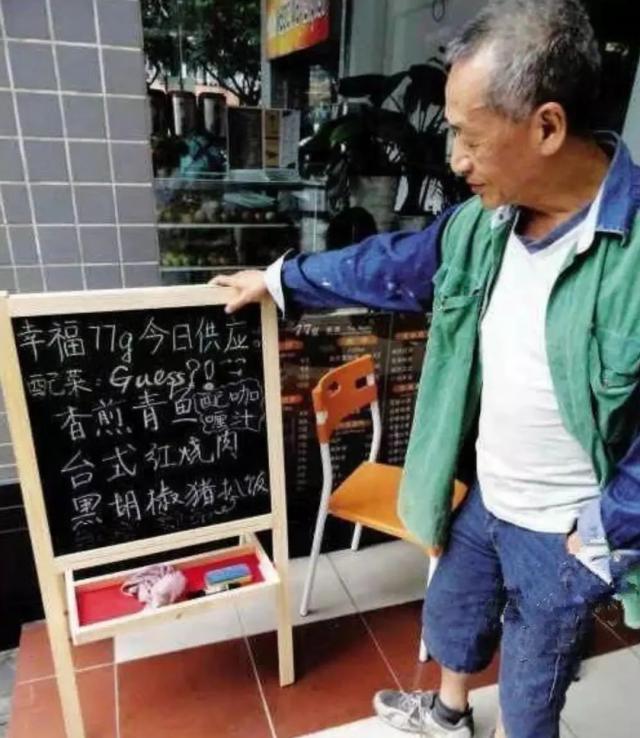 幸福77g今日供应
配菜:Guess?!
香煎青鱼配咖喱汁
台式红烧肉
黑胡椒猪扒饭
77g